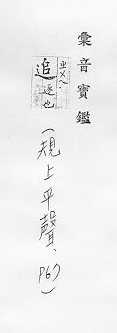 彙音寶鑑
ㄓㄨㄟ
追 逐也
(規上平聲、P67)